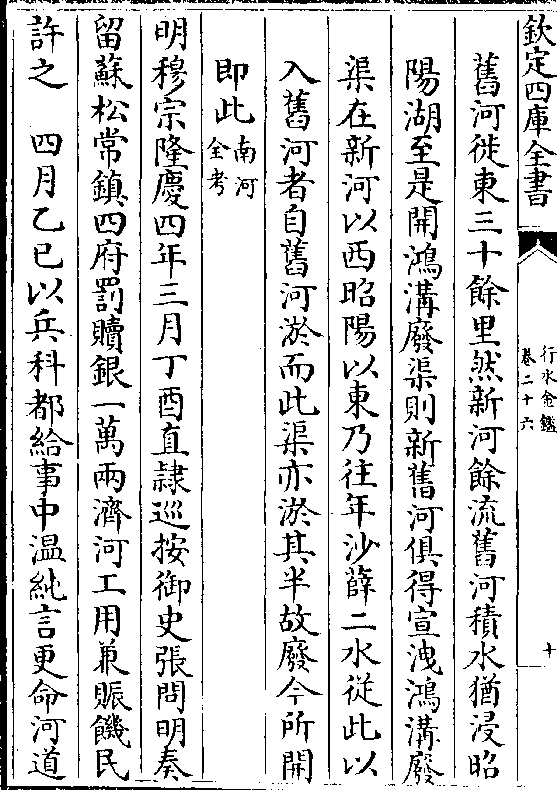 欽定四庫全書
行水金鑑
卷二十六
十
舊河徙東三十餘里然新河餘流舊河積水猶浸昭
陽湖至是開鴻溝廢渠則新舊河俱得宣洩鴻溝廢
渠在新河以西昭陽以東乃往年沙薛二水從此以
入舊河者自舊河淤而此渠亦淤其半故廢今所開
即此南河
全考
明穆宗隆慶四年三月丁酉直隷巡按御史張問明奏
留蘇松常鎮四府罰贖銀一萬兩濟河工用兼賑饑民
許之　四月乙巳以兵科都給事中温純言更命河道